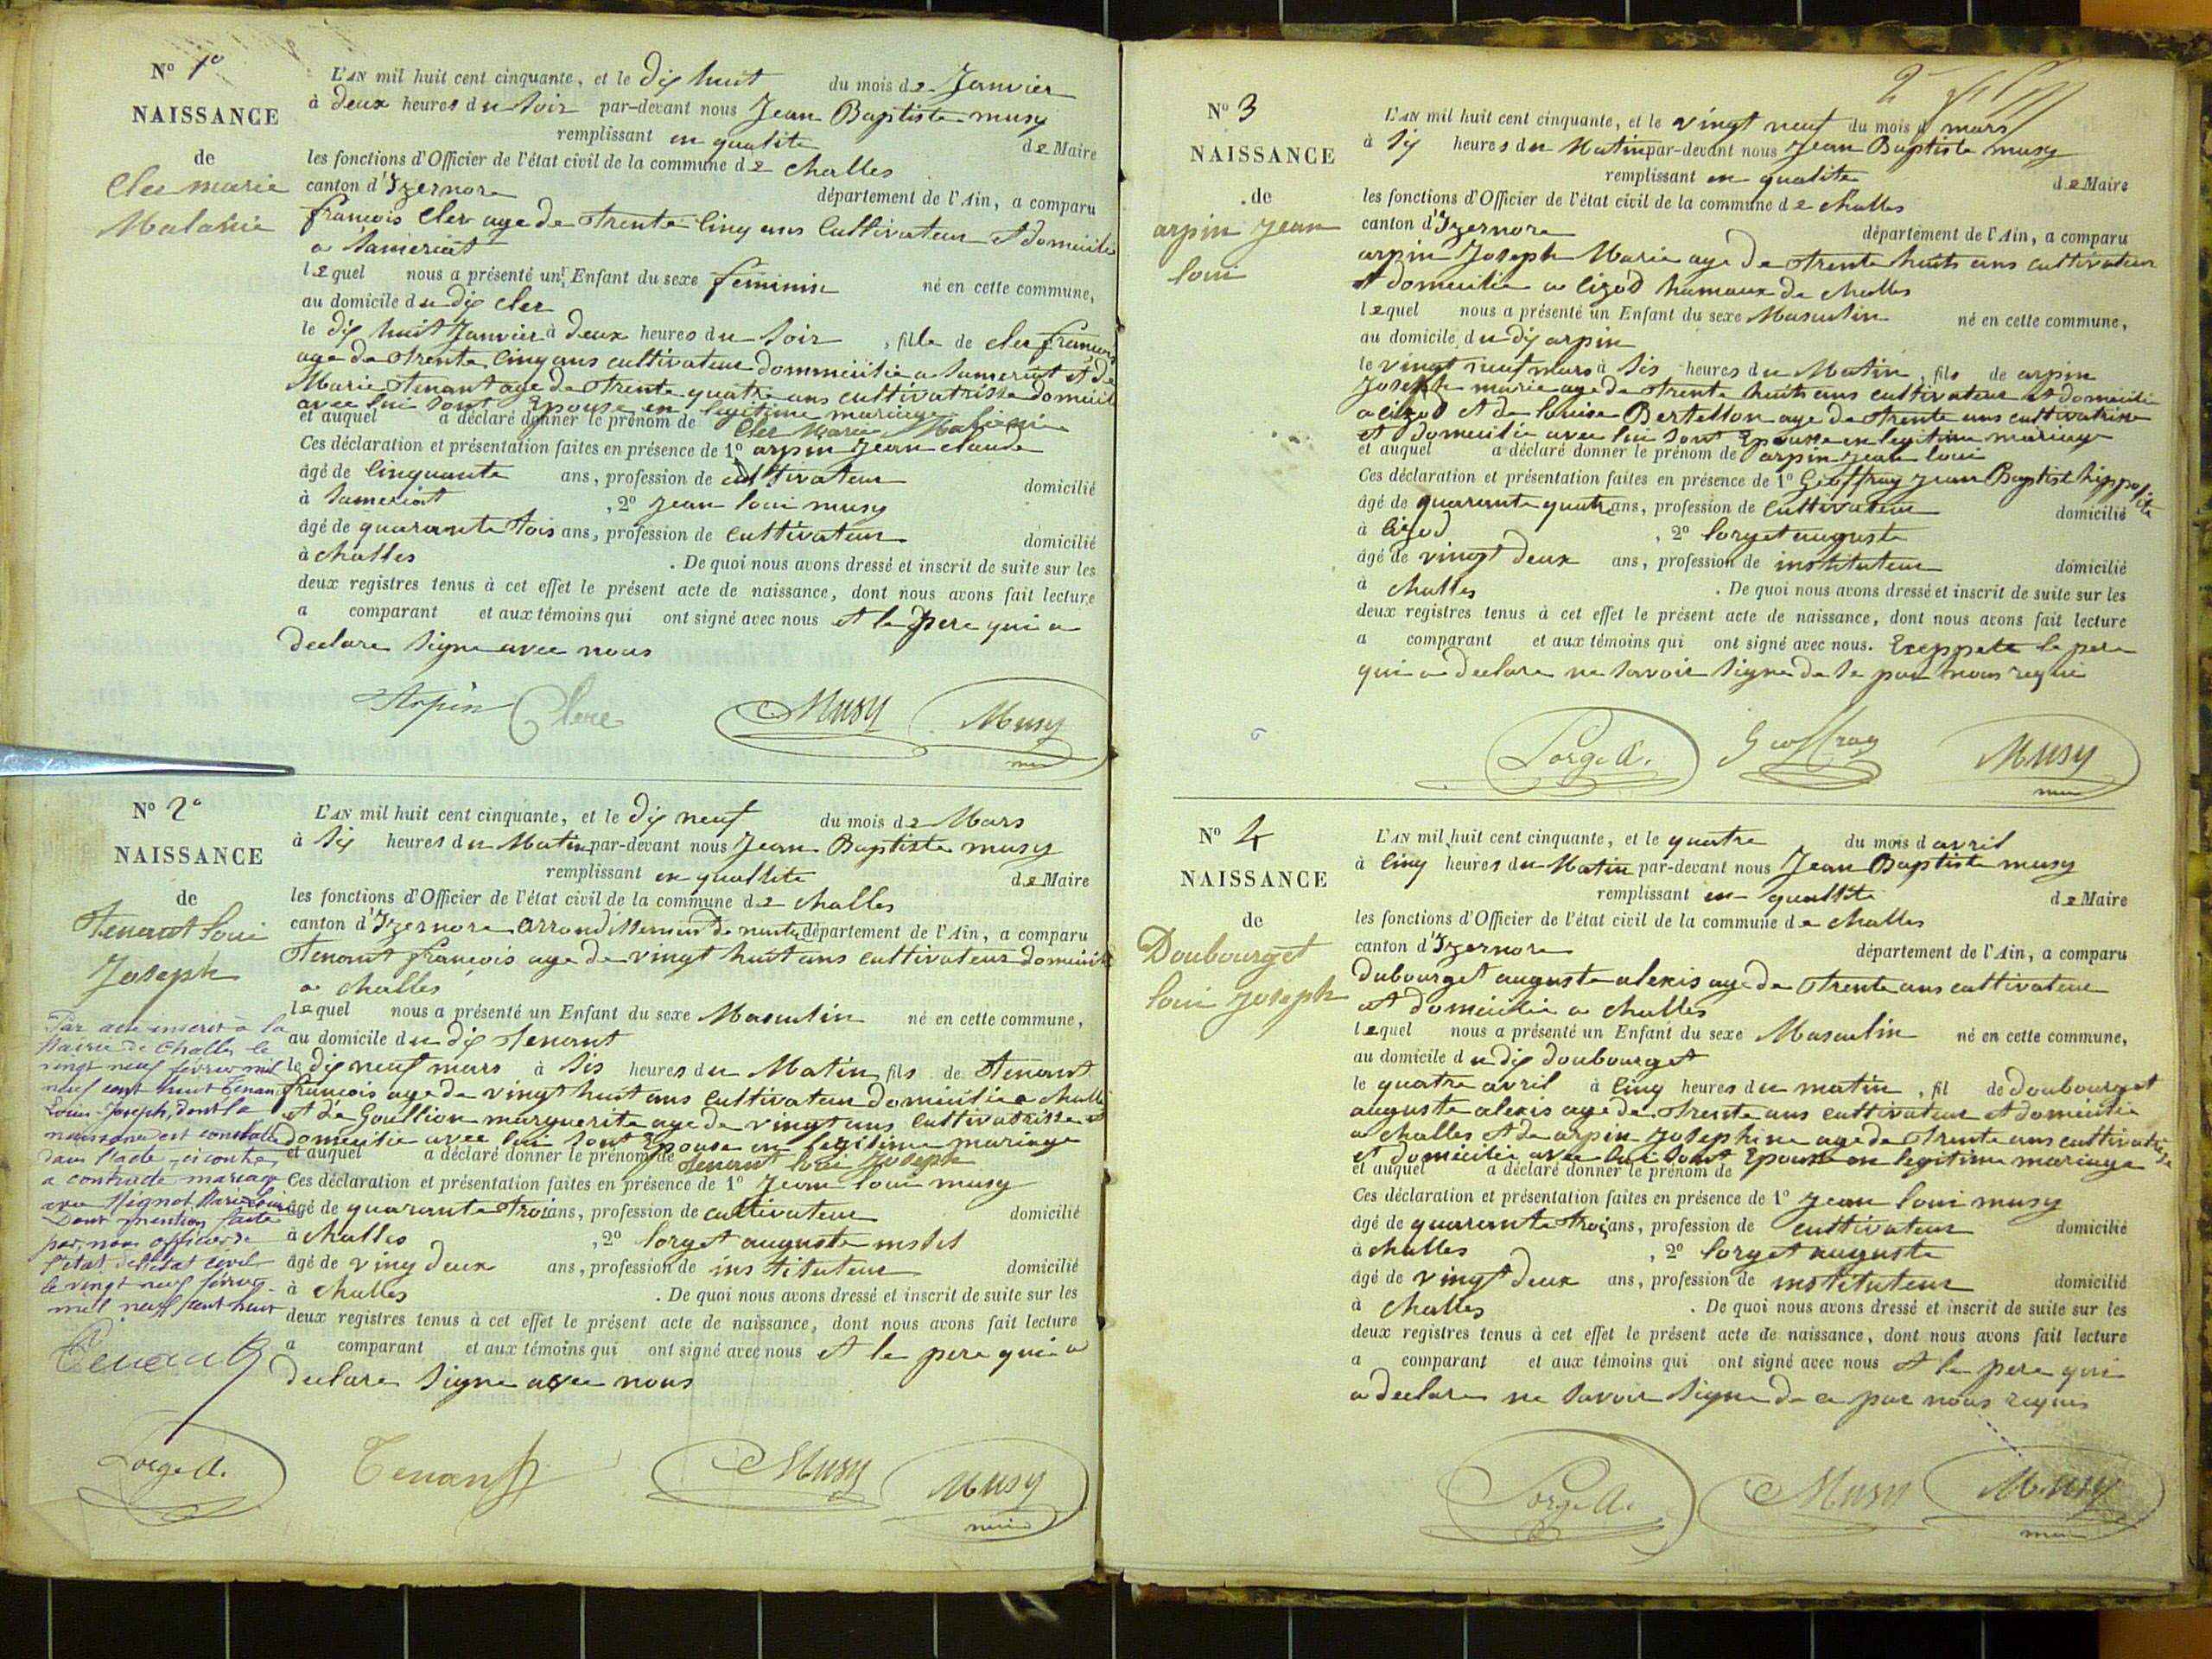 Nº 1º
NAISSANCE
de
Cler marie
Malanie
L'AN mil huit cent cinquante, et le dix huit du mois de Janvier
à deux heures du Soir par-devant nous Jean Baptiste musy
remplissant en qualite de Maire
les fonctions d'Officier de l'état civil de la commune de challes
canton d'Izernore département de l'Ain, a comparu
francois Cler age de trente Cinq ans Cultivateur et domicilie
a Sameriat
lequel nous a présenté un Enfant du sexe feminin né en cette commune,
au domicile du dix cler
le dix huit Janvier à deux heures du Soir, fille de cler francois
age de trente Cinq ans cultivateur dommicilie a Sameriat et de
Marie tenant age de trente quatre ans cultivatrisse domicili
avec lui sont Epouse en legitime mariage
et auquel a déclaré donner le prénom de Cler Marie
Ces déclaration et présentation faites en présence de 1º arpin Jean claude
âgé de Cinquante ans, profession de cultivateur domicilié
à Sameriat, 2º Jean loui musy
âgé de quarante tois ans, profession de cultivateur domicilié
à challes. De quoi nous avons dressé et inscrit de suite sur les
deux registres tenus à cet effet le présent acte de naissance, dont nous avons fait lecture
a comparant et aux témoins qui ont signé avec nous et le pere qui a
declare Signe avec nous
Arpin Clere Musy Musy
Nº 2º
NAISSANCE
de
Tenant loui
Joseph
Par acte inscrit à la
Mairie de Challes le
vingt neuf février mil
neuf cent huit Tenant
Louis-Joseph, dont la
naissance est constatée
dans l'acte ci contre,
a contracté mariage
avec Mignot Marie Louise
Dont mention faite
par nous officier de
l'état de l'état civil
le vingt neuf février
mil neuf cent huit
Tenant
L'AN mil huit cent cinquante, et le dix neuf du mois de Mars
à Six heures du Matin par-devant nous Jean Baptiste musy
remplissant en quallite de Maire
les fonctions d'Officier de l'état civil de la commune de challes
canton d'Izernore arrondissement de nantua département de l'Ain, a comparu
Tenant francois age de vingt huit ans cultivateur domicili
a challes
lequel nous a présenté un Enfant du sexe Masculin né en cette commune,
au domicile du dix tenant
le dix neuf mars à Sis heures du Matin, fils de tenant
francois age de vingt huit ans cultivateur domicilie a challe
et de Goullion marguerite age de vingt ans cultivatrisse et
domicilie avec lui sont Epouse en legitime mariage
et auquel a déclaré donner le prénom de tenant loui Joseph
Ces déclaration et présentation faites en présence de 1º Jean loui musy
âgé de quarante trois ans, profession de cultivateur domicilié
à challes, 2º lorget auguste
âgé de ving deux ans, profession de instituteur domicilié
à challes. De quoi nous avons dressé et inscrit de suite sur les
deux registres tenus à cet effet le présent acte de naissance, dont nous avons fait lecture
a comparant et aux témoins qui ont signé avec nous et le pere qui a
declare Signe avec nous
Lorget A. Tenant Musy Musy
maire
2
Nº 3
NAISSANCE
de
arpin Jean
loui
L'AN mil huit cent cinquante, et le vingt neuf du mois d mars
à Six heures du Matin par-devant nous Jean Baptiste musy
remplissant en qualite de Maire
les fonctions d'Officier de l'état civil de la commune de challes
canton d'Izernore département de l'Ain, a comparu
arpin Joseph Marie age de trente huit ans cultivateur
et domicilie a lizod hamaux de challes
lequel nous a présenté un Enfant du sexe Masculin né en cette commune,
au domicile du dix arpin
le vingt neuf mars à Sis heures du Matin, fils de arpin
Joseph marie age de trente huit ans cultivateur et domicilie
a lizod et de louise Bertellon age de trente ans cultivatrise
et domicilie avec lui sont Epousse en legitime mariage
et auquel a déclaré donner le prénom de arpin Jean loui
Ces déclaration et présentation faites en présence de 1º Geoffray Jean Baptist hippolite
âgé de quarante quatre ans, profession de cultivateur domicilié
à lizod, 2º lorget auguste
âgé de vingt deux ans, profession de instituteur domicilié
à challes. De quoi nous avons dressé et inscrit de suite sur les
deux registres tenus à cet effet le présent acte de naissance, dont nous avons fait lecture
a comparant et aux témoins qui ont signé avec nous. Exeppete le pere
qui a declare ne Savoir Signe de se par nous requi
Lorget A. Geoffray Musy
Nº 4
NAISSANCE
de
Doubourget
loui Joseph
L'AN mil huit cent cinquante, et le quatre du mois d avril
à Cinq heures du Matin par-devant nous Jean Baptiste musy
remplissant en quallite de Maire
les fonctions d'Officier de l'état civil de la commune de challes
canton d'Izernore département de l'Ain, a comparu
dubourget auguste alexis age de trente ans cultivateur
et domicilie a challes
lequel nous a présenté un Enfant du sexe Masculin né en cette commune,
au domicile du dix doubourget
le quatre avril à Cinq heures du matin, fil de doubourget
auguste alexis age de trente ans cultivateur et domicilie
a challes et de arpin Josephine age de trente ans cultivatrise
et domicilie avec lui sont Epouse en legitime mariage
et auquel a déclaré donner le prénom de
Ces déclaration et présentation faites en présence de 1º Jean loui musy
âgé de quarante trois ans, profession de cultivateur domicilié
à challes, 2º lorget auguste
âgé de vingt deux ans, profession de instituteur domicilié
à challes. De quoi nous avons dressé et inscrit de suite sur les
deux registres tenus à cet effet le présent acte de naissance, dont nous avons fait lecture
a comparant et aux témoins qui ont signé avec nous et le pere qui
a declare ne Savoir Signe de ce par nous requis
Lorget A. Musy Musy